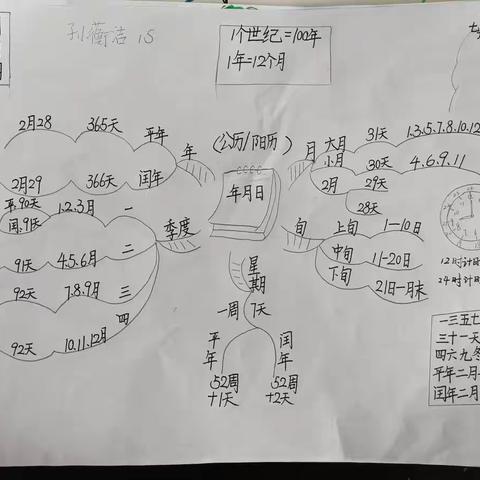 孙蘅洁 15
1个世纪=100年
1年=12个月
(公历/阳历)
年月日
年
平年
365天
2月28
闰年
366天
2月29
季度
一
1.2.3月
平.90天
闰.91天
二
4.5.6月
91天
三
7.8.9月
92天
四
10.11.12月
92天
月
大月
31天
1.3.5.7.8.10.12
小月
30天
4.6.9.11
2月
29天
28天
旬
上旬
1-10日
中旬
11-20日
下旬
21日-月末
星期
一周
7天
平年
52周
+1天
闰年
52周
+2天
12时计时
24时计时
一三五七
三十一天
四六九冬
平年二月
闰年二月